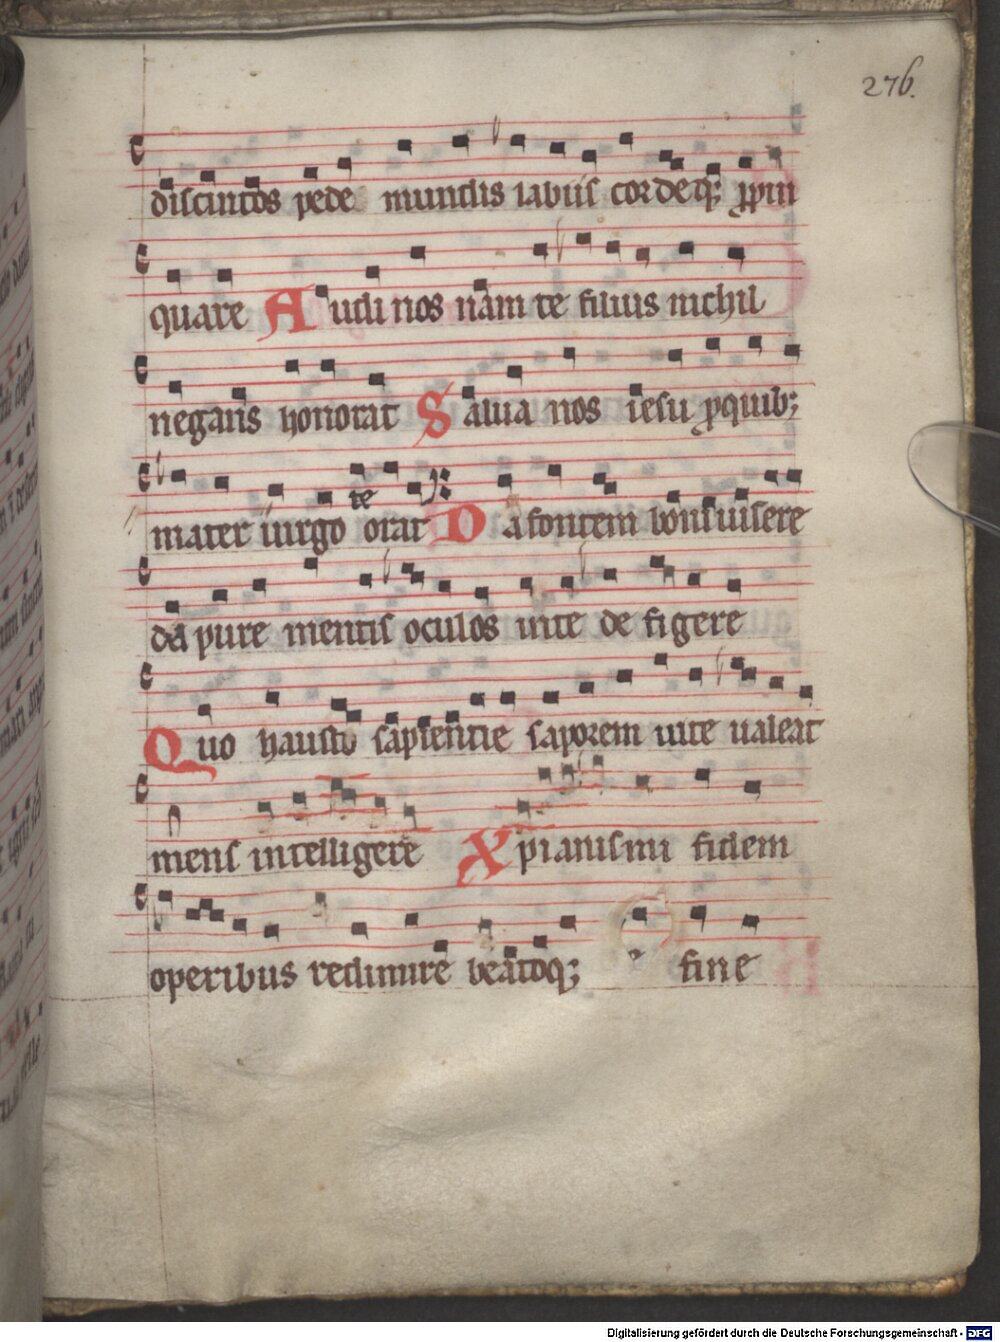 276.
discintos pede mundis labiis cordeq; ꝓpin
quare Audi nos nam te filius nichil
negans honorat Salua nos iesu ꝓquib;
mater uirgo te orat Da fontem boni uisere
da pure mentis oculos in te de figere
Quo haustu sapientie saporem uite ualeat
mens intelligere Xpianismi fidem
operibus redimire beatoq; fine
Digitalisierung gefördert durch die Deutsche Forschungsgemeinschaft - DFG